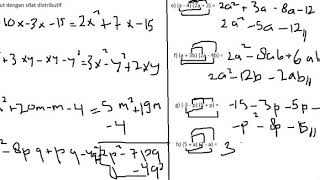 ut dengan sifat distributif
10x-3x-15=2x²+7x-15
3xy-xy-y²=3x²-y²+2xy
+20m-m-4 5m²+19m
-4
-8pq+pq-4q² 2p²-7pq
-4q²
e) (a - 4) (2a + 3) = 2a²+3a-8a-12
2a²-5a-12
f) (a + 3b) (2a - 4b) = 2a²
2a²-12b-2ab
g) (-3 - p) (5 + p) = -15-3p-5p-
-p²-8p-15
h) (5 + a) (7 - a) = 3